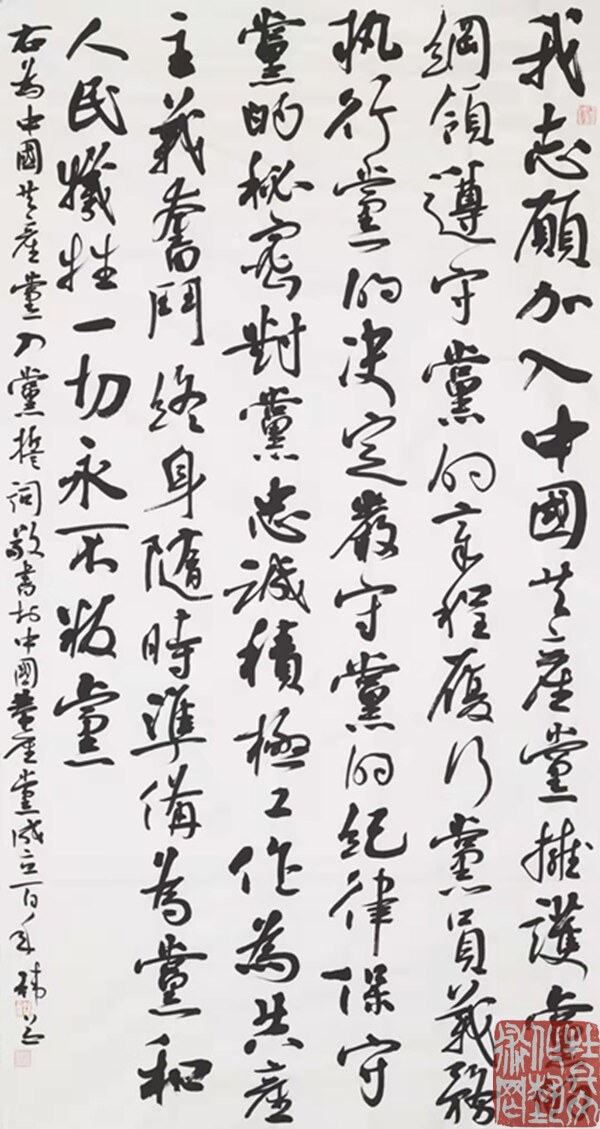 我志願加入中國共產黨擁護黨的
綱領遵守黨的章程履行黨員義務
执行黨的决定嚴守黨的紀律保守
黨的秘密對黨忠誠積極工作為共產
主義奮鬥終身隨時準備為黨和
人民犧牲一切永不叛黨
右為中國共產黨入黨誓詞敬書於中國共產黨成立百年